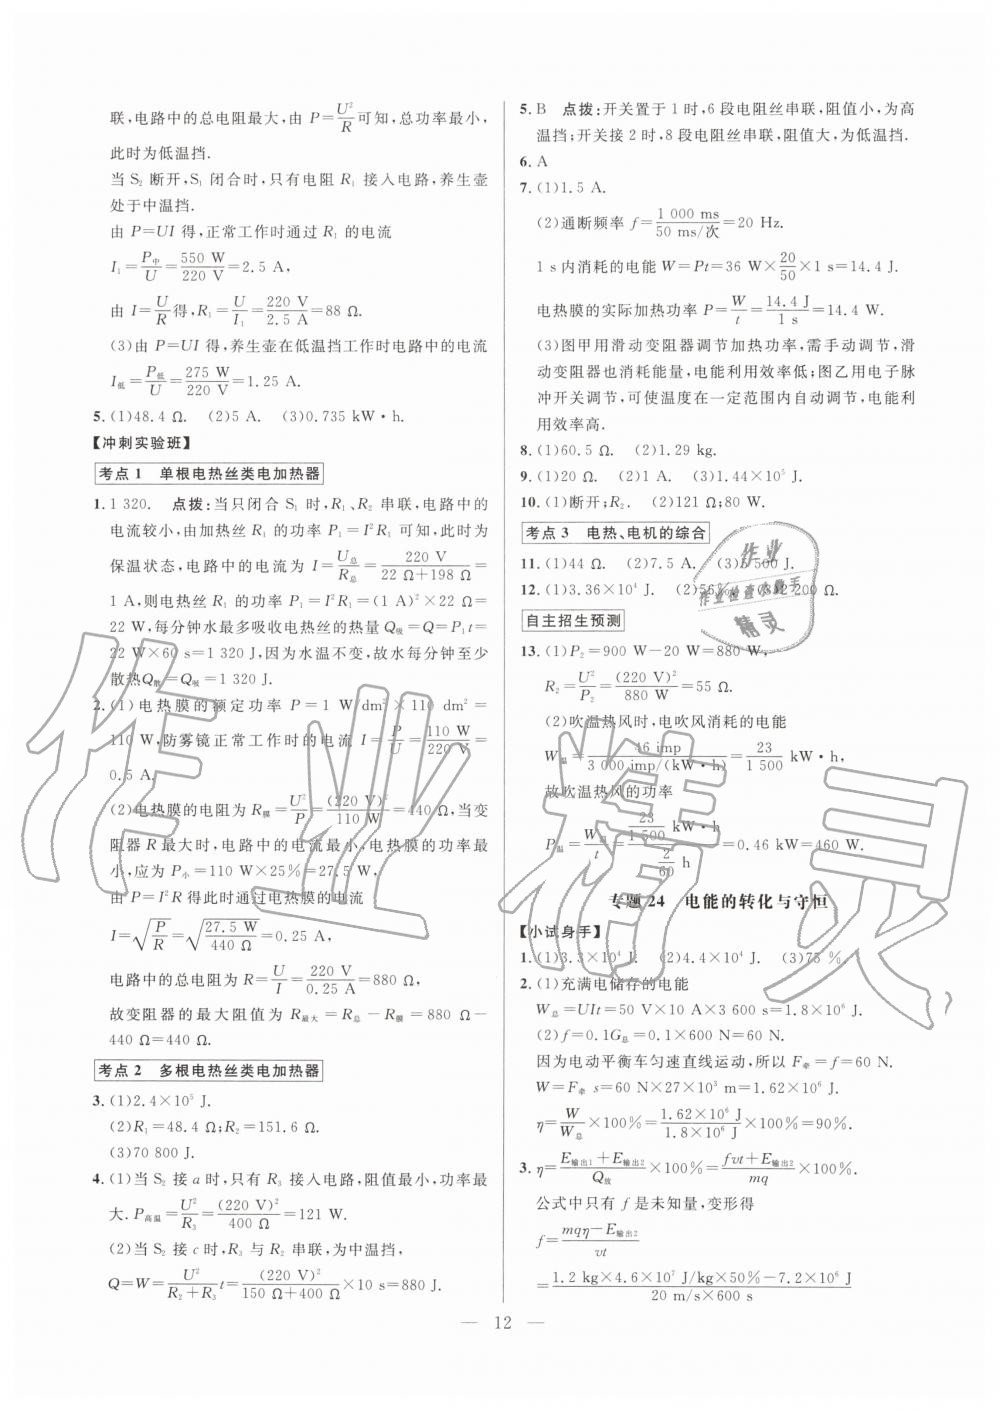 联,电路中的总电阻最大,由 P=U²/R可知,总功率最小,
此时为低温挡.
当 S₂ 断开,S₁ 闭合时,只有电阻 R₁ 接入电路,养生壶
处于中温挡.
由 P=UI 得,正常工作时通过 R₁ 的电流
I₁=P中/U=550 W/220 V=2.5 A,
由 I=U/R得,R₁=U/I₁=220 V/2.5 A=88 Ω.
(3)由 P=UI 得,养生壶在低温挡工作时电路中的电流
I低=P低/U=275 W/220 V=1.25 A.
5. (1)48.4 Ω. (2)5 A. (3)0.735 kW·h.
【冲刺实验班】
考点 1 单根电热丝类电加热器
1. 1 320. 点拨:当只闭合 S₁ 时,R₁、R₂ 串联,电路中的
电流较小,由加热丝 R₁ 的功率 P₁=I²R₁ 可知,此时为
保温状态,电路中的电流为 I=U总/R总=220 V/(22 Ω+198 Ω)=
1 A,则电热丝 R₁ 的功率 P₁=I²R₁=(1 A)²×22 Ω=
22 W,每分钟水最多吸收电热丝的热量Q吸=Q=P₁t=
22 W×60 s=1 320 J,因为水温不变,故水每分钟至少
散热Q散=Q吸=1 320 J.
2. (1)电热膜的额定功率 P=1 W/dm²×110 dm²=
110 W,防雾镜正常工作时的电流 I=P/U=110 W/220 V=
0.5 A.
(2)电热膜的电阻为 R膜=U²/P=(220 V)²/110 W=440 Ω,当变
阻器 R 最大时,电路中的电流最小,电热膜的功率最
小,应为 P小=110 W×25%=27.5 W,
由 P=I²R 得此时通过电热膜的电流
I=√(P/R)=√(27.5 W/440 Ω)=0.25 A,
电路中的总电阻为 R总=U/I=220 V/0.25 A=880 Ω,
故变阻器的最大阻值为 R最大=R总-R膜=880 Ω-
440 Ω=440 Ω.
考点 2 多根电热丝类电加热器
3. (1)2.4×10⁵ J.
(2)R₁=48.4 Ω;R₂=151.6 Ω.
(3)70 800 J.
4. (1)当 S₂ 接 a 时,只有 R₃ 接入电路,阻值最小,功率最
大. P高温=U²/R₃=(220 V)²/400 Ω=121 W.
(2)当 S₂ 接 c 时,R₃ 与 R₂ 串联,为中温挡,
Q=W=U²/(R₂+R₃)t=(220 V)²/(150 Ω+400 Ω)×10 s=880 J.
5. B 点拨:开关置于 1 时,6 段电阻丝串联,阻值小,为高
温挡;开关接 2 时,8 段电阻丝串联,阻值大,为低温挡.
6. A
7. (1)1.5 A.
(2)通断频率 f=1 000 ms/50 ms/次=20 Hz.
1 s内消耗的电能 W=Pt=36 W×20/50×1 s=14.4 J.
电热膜的实际加热功率 P=W/t=14.4 J/1 s=14.4 W.
(3)图甲用滑动变阻器调节加热功率,需手动调节,滑
动变阻器也消耗能量,电能利用效率低;图乙用电子脉
冲开关调节,可使温度在一定范围内自动调节,电能利
用效率高.
8. (1)60.5 Ω. (2)1.29 kg.
9. (1)20 Ω. (2)1 A. (3)1.44×10⁵ J.
10. (1)断开;R₂. (2)121 Ω;80 W.
考点 3 电热、电机的综合
11. (1)44 Ω. (2)7.5 A. (3)5 500 J.
12. (1)3.36×10⁴ J. (2)56% (3)2 200 Ω.
自主招生预测
13. (1)P₂=900 W-20 W=880 W,
R₂=U²/P₂=(220 V)²/880 W=55 Ω.
(2)吹温热风时,电吹风消耗的电能
W温=46 imp/3 000 imp/(kW·h)=23/1 500 kW·h,
故吹温热风的功率
P温=W温/t=(23/1 500 kW·h)/(2/60 h)=0.46 kW=460 W.
专题 24 电能的转化与守恒
【小试身手】
1. (1)3.3×10⁴ J. (2)4.4×10⁴ J. (3)75 %
2. (1)充满电储存的电能
W总=UIt=50 V×10 A×3 600 s=1.8×10⁶ J.
(2)f=0.1G总=0.1×600 N=60 N.
因为电动平衡车匀速直线运动,所以 F牵=f=60 N.
W=F牵 s=60 N×27×10³ m=1.62×10⁶ J.
η=W/W总×100%=1.62×10⁶ J/1.8×10⁶ J×100%=90%.
3. η=(E输出1+E输出2)/Q放=(fvt+E输出2)/mq
公式中只有 f 是未知量,变形得
f=(mqη-E输出2)/vt
=(1.2 kg×4.6×10⁷ J/kg×50%-7.2×10⁶ J)/(20 m/s×600 s)
— 12 —
作业
作业检查小助手
精灵
作业精灵